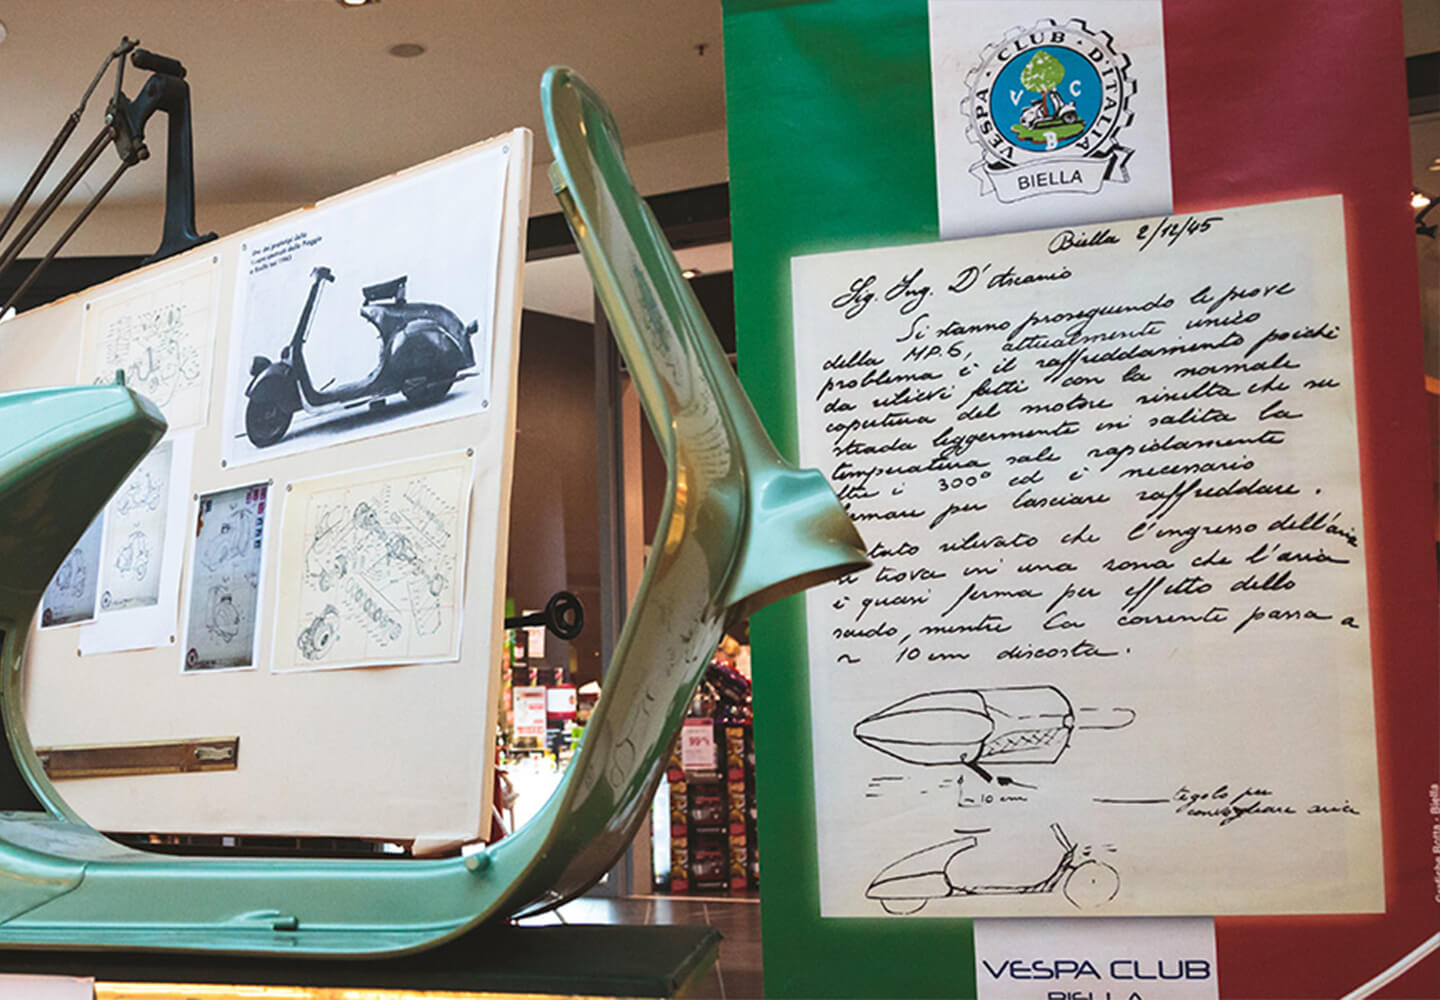 Uno dei prototipi della
VESPA · CLUB · D'ITALIA
V C
B
BIELLA
Biella 2/12/45
Sig. Ing. D'Ascanio
Si stanno proseguendo le prove
della MP.6, attualmente unico
problema è il raffreddamento poichè
da rilievi fatti con la normale
copertura del motore risulta che su
strada leggermente in salita la
temperatura sale rapidamente
i 300° ed è necessario
per lasciare raffreddare.
rilevato che l'ingresso dell'aria
trova in una zona che l'aria
è quasi ferma per effetto dello
scudo, mentre la corrente passa a
10 cm discosta.
10 cm
tegolo per
convogliare aria
VESPA CLUB
BIELLA
Grafiche Botta - Biella